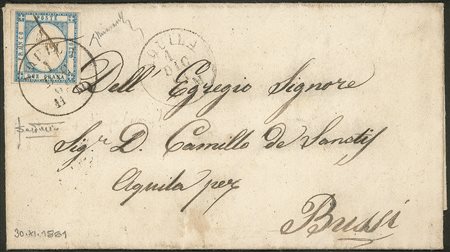 FRANCO
POSTE
DUE GRANA
AQUILA
1
DIC
Dell' Egregio Signore
Sigr D. Camillo de Sanctis
Aquila per
Bussi
30.XI.1861